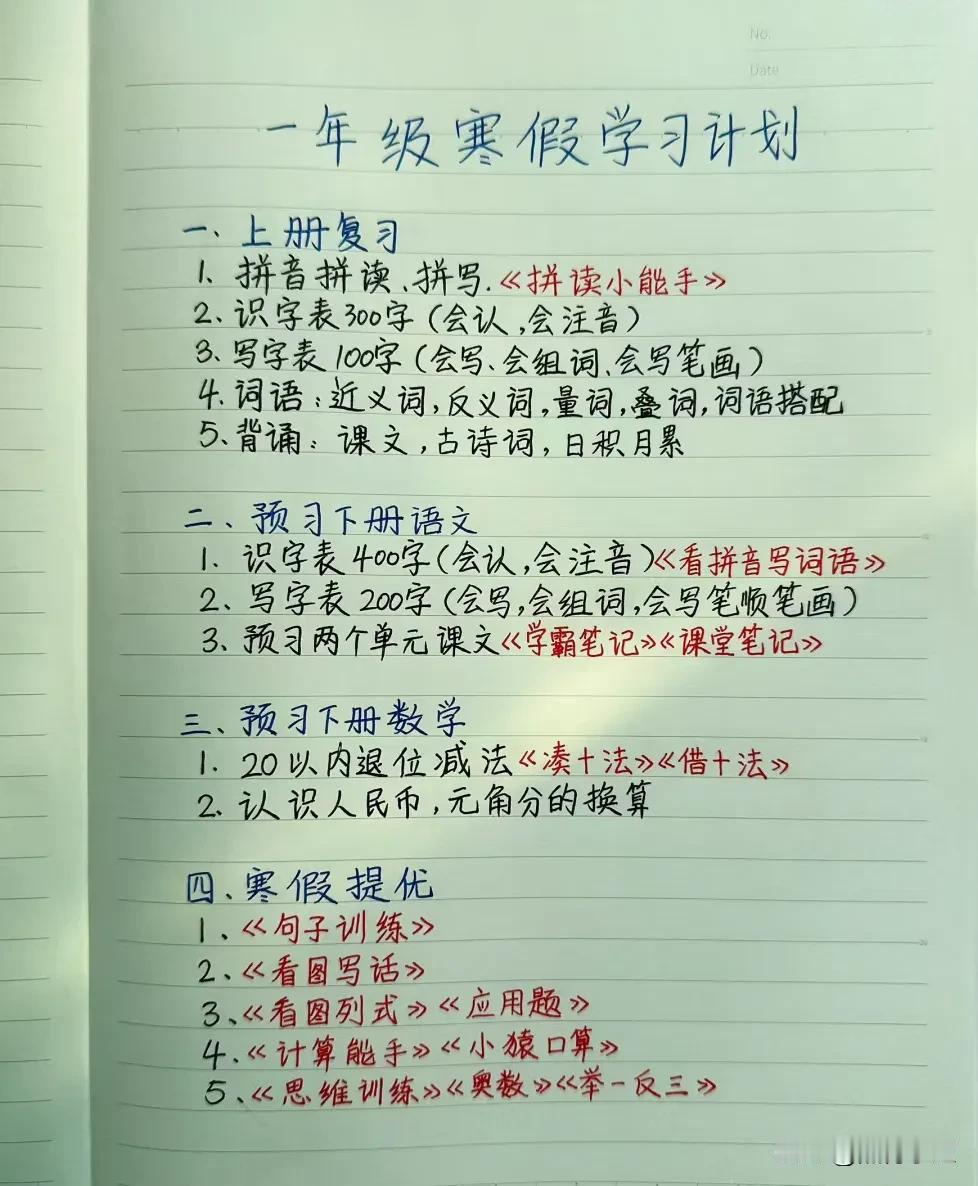 No.
Date
一年级寒假学习计划
一、上册复习
1. 拼音拼读、拼写.《拼读小能手》
2、识字表300字(会认,会注音)
3、写字表100字(会写、会组词、会写笔画)
4. 词语:近义词,反义词,量词,叠词,词语搭配
5、背诵:课文,古诗词,日积月累
二、预习下册语文
1. 识字表400字(会认,会注音)《看拼音写词语》
2、写字表200字(会写,会组词,会写笔顺笔画)
3、预习两个单元课文《学霸笔记》《课堂笔记》
三、预习下册数学
1. 20以内退位减法《凑十法》《借十法》
2. 认识人民币,元角分的换算
四、寒假提优
1、《句子训练》
2、《看图写话》
3、《看图列式》《应用题》
4.《计算能手》《小猿口算》
5、《思维训练》《奥数》《举一反三》